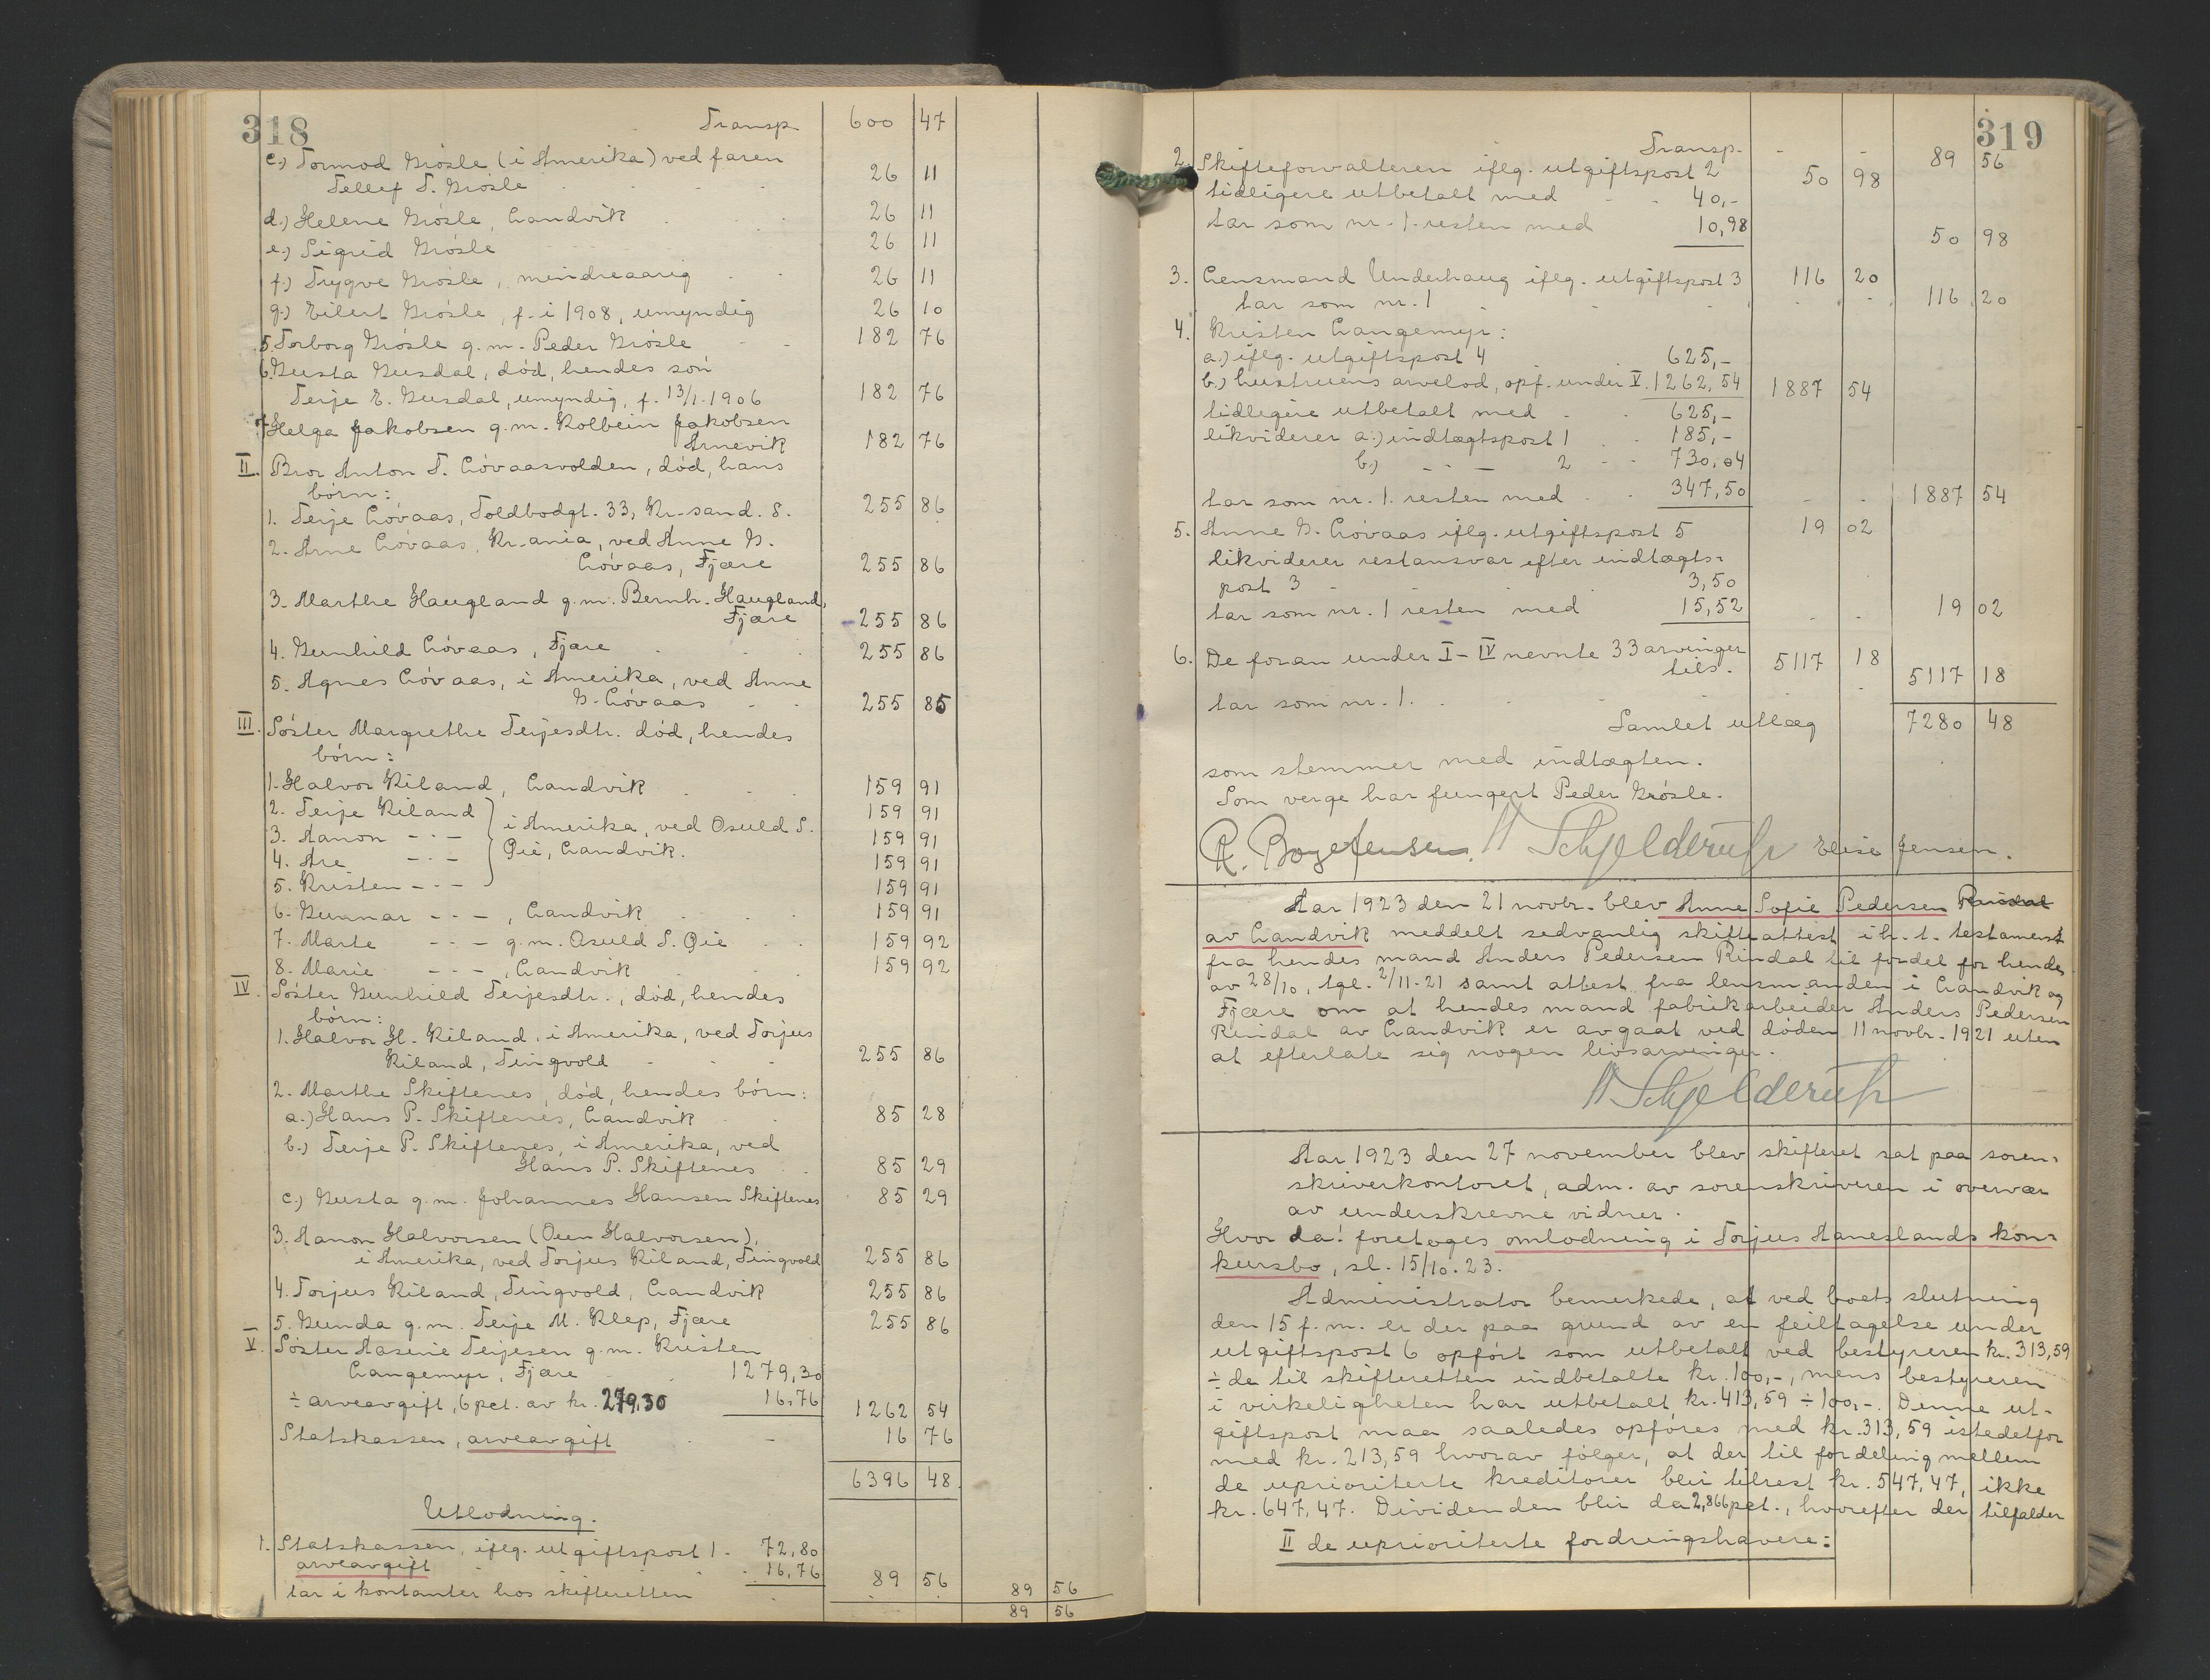 318
Transp. 600 47
c.) Tormod Grösle (i Amerika) ved faren
Tellef T. Grösle 26 11
d.) Helene Grösle, Landvik 26 11
e.) Sigrid Grösle 26 11
f.) Trygve Grösle, mindreaarig 26 11
g.) Eilert Grösle, f. i 1908, umyndig 26 10
5. Torborg Grösle g.m. Peder Grösle 182 76
6. Gusta Gusdal, död, hendes sön
Terje E. Gusdal, umyndig, f. 13/1-1906 182 76
7. Helga Jakobsen g.m. Kolbein Jakobsen
Arnevik 182 76
II. Bror Anton T. Lövaasvolden, död, hans
börn:
1. Terje Lövaas, Toldbodgt. 33, Kr.sand. S. 255 86
2. Arne Lövaas, Kr.ania, ved Anne G.
Lövaas, Fjære 255 86
3. Marthe Haugland g.m. Bernh. Haugland,
Fjære 255 86
4. Gunhild Lövaas, Fjære 255 86
5. Agnes Lövaas, i Amerika, ved Anne
G. Lövaas 255 85
III. Söster Margrethe Terjesdtr. död, hendes
börn:
1. Halvor Riland, Landvik 159 91
2. Terje Riland 159 91
3. Aanon - " - i Amerika, ved Osuld S. 159 91
4. Are - " - Øie, Landvik. 159 91
5. Kristen - " - 159 91
6. Gunnar - " - , Landvik 159 91
7. Marte - " - g.m. Osuld S. Øie 159 92
8. Marie - " - , Landvik 159 92
IV. Söster Gunhild Terjesdtr., död, hendes
börn:
1. Halvor H. Riland, i Amerika, ved Torjus
Riland, Tingvold 255 86
2. Marthe Skiftenes, död, hendes börn:
a.) Hans P. Skiftenes, Landvik 85 28
b.) Terje P. Skiftenes, i Amerika, ved
Hans P. Skiftenes 85 29
c.) Gusta g.m. Johannes Hansen Skiftenes 85 29
3. Aanon Halvorsen (Oen Halvorsen),
i Amerika, ved Torjus Riland, Tingvold 255 86
4. Torjus Riland, Tingvold, Landvik 255 86
5. Gunda g.m. Terje M. Klep, Fjære 255 86
V. Söster Aasine Terjesen g.m. Kristen
Langemyr, Fjære 1279,30
÷ arveavgift, 6 pct. av kr. 279,30 16,76 1262 54
Statskassen, arveavgift 16 76
6396 48
Utlodning.
1. Statskassen, iflg. utgiftspost 1. 72,80
arveavgift 16,76 89 56
tar i kontanter hos skifteretten 89 56
89 56
319
Transp. 89 56
2. Skifteforvalteren iflg. utgiftspost 2 50 98
tidligere utbetalt med 40,-
tar som nr. 1. resten med 10,98 50 98
3. Lensmand Underhaug iflg. utgiftspost 3 116 20
tar som nr. 1 116 20
4. Kristen Langemyr:
a.) iflg. utgiftspost 4 625,-
b.) hustruens arvelod, opf. under V. 1262,54 1887 54
tidligere utbetalt med 625,-
likviderer a.) indtægtspost 1 185,-
b.) - " - 2 730,04
tar som nr. 1. resten med 347,50 1887 54
5. Anne G. Lövaas iflg. utgiftspost 5 19 02
likviderer restansvar efter indtægts-
post 3 3,50
tar som nr. 1 resten med 15,52 19 02
6. De foran under I - IV nevnte 33 arvinger
tils. 5117 18
tar som nr. 1. 5117 18
Samlet utlæg 7280 48
som stemmer med indtægten.
Som verge har fungert Peder Grösle.
R. Boye Jensen. Schjelderup Elise Jensen.
Aar 1923 den 21 novbr. blev Anne Sofie Pedersen Rindal
av Landvik meddelt sedvanlig skifteattest i h. t. testament
fra hendes mand Anders Pedersen Rindal til fordel for hende
av 28/10, tgl. 2/11-21 samt attest fra lensmanden i Landvik og
Fjære om at hendes mand fabrikarbeider Anders Pedersen
Rindal av Landvik er avgaat ved döden 11 novbr. 1921 uten
at efterlate sig nogen livsarvinger.
Schjelderup
Aar 1923 den 27 november blev skifteret sat paa soren-
skriverkontoret, adm. av sorenskriveren i overvær
av underskrevne vidner.
Hvor da: foretoges omlodning i Torjus Haneslands kon-
kursbo, sl. 15/10.23.
Administrator bemerkede, at ved boets slutning
den 15 f. m. er der paa grund av en feiltagelse under
utgiftspost 6 opfört som utbetalt ved bestyreren kr. 313,59
÷ de til skifteretten indbetalte kr. 100,-, mens bestyreren
i virkeligheten har utbetalt kr. 413,59 ÷ 100,-. Denne ut-
giftspost maa saaledes opföres med kr. 313,59 istedetfor
med kr. 213,59 hvorav fölger, at der til fordeling mellem
de uprioriterte kreditorer blir tilrest kr. 547,47, ikke
kr. 647,47. Dividenden blir da 2,866 pct., hvorefter der tilfalder
II de uprioriterte fordringshavere: